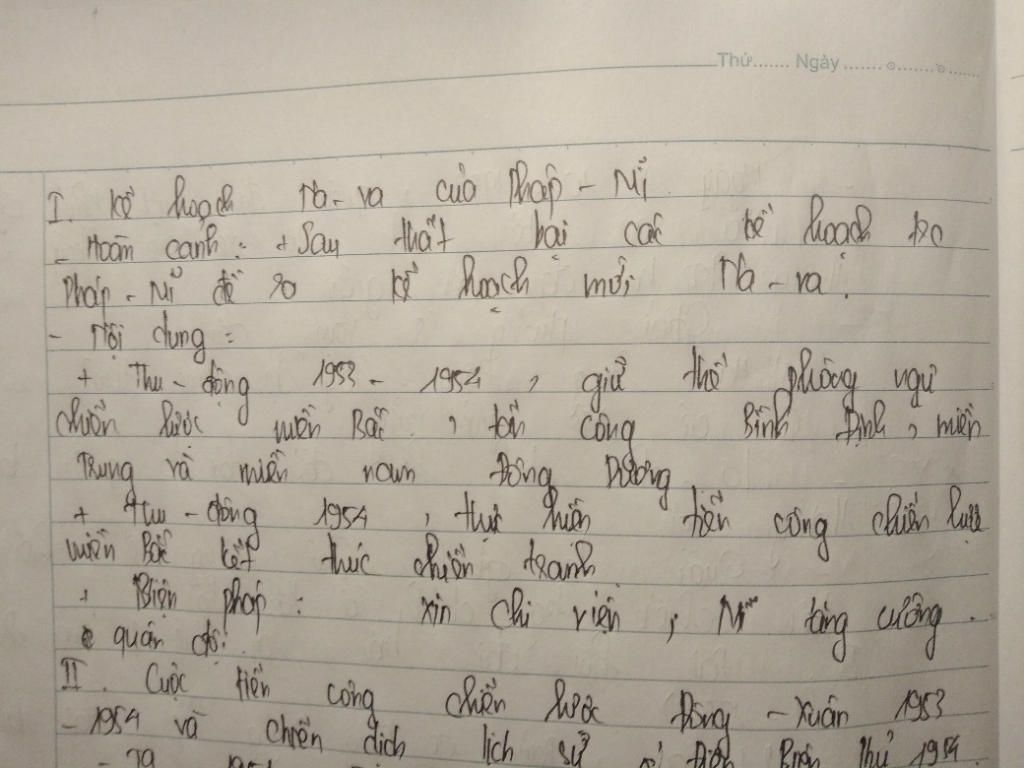 Thứ....... Ngày ....... ........ ......
I. Kế hoạch Na-va của Pháp - Mĩ
- Hoàn cảnh : + Sau thất bại các kế hoạch
Pháp - Mĩ đề ra kế hoạch mới Na - va.
- Nội dung :
+ Thu - đông 1953 - 1954 , giữ thế phòng ngự
chiến lược miền Bắc , tấn công Bình Định , miền
Trung và miền nam Đông Dương
+ thu - đông 1954 , thực hiện tiến công chiến lược
miền Bắc kết thúc chiến tranh
+ Biện pháp : xin chi viện , Mĩ tăng cường .
quân đội.
II . Cuộc tiến công chiến lược Đông - Xuân 1953
- 1954 và chiến dịch lịch sử Điện Biên Phủ 1954.